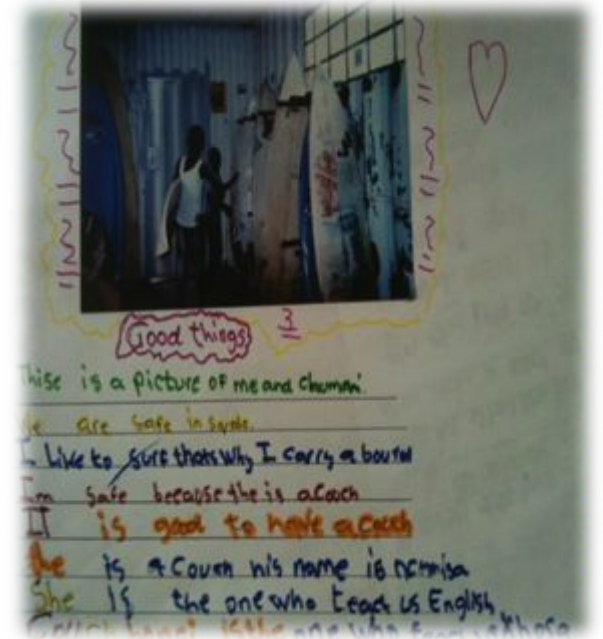 3
Good things
Thise is a picture of me and Chumani.
We are safe in
I Like to surf thats why I carry a
Im safe because the is a coach
It is good to have a coach
he is a his name is
She is the one who teach us English
is the one who